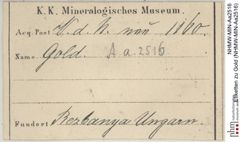 K. K. Mineralogisches Museum.
Acq. Post 1860.
Name Gold. A a. 2516
Fundort Rezbanya Ungarn.
NHMW-MIN-Aa2516
Etiketten zu Gold (NHMW-MIN-Aa2516)